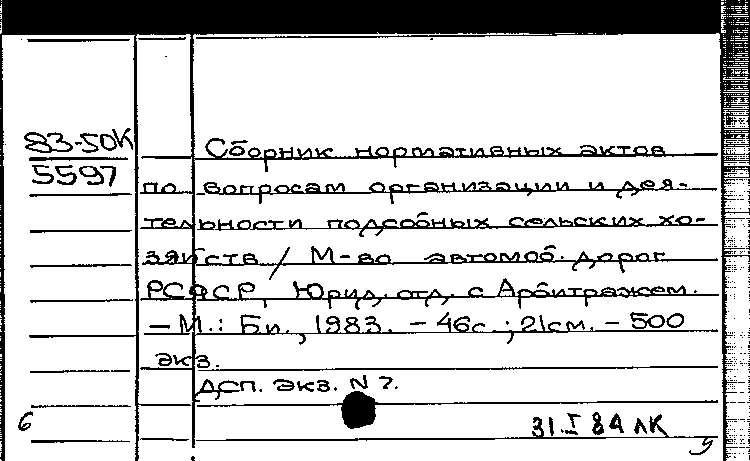 83-50К
5597
Сборник нормативных актов
по вопросам организации и дея-
тельности подсобных сельских хо-
зяйств / М-во автомоб. дорог
РСФСР, Юрид. отд. с Арбитражем.
— М.: Би., 1983. - 46с.; 21см. - 500
экз.
ДСП. Экз. N 7.
6
31.I 84 ЛК